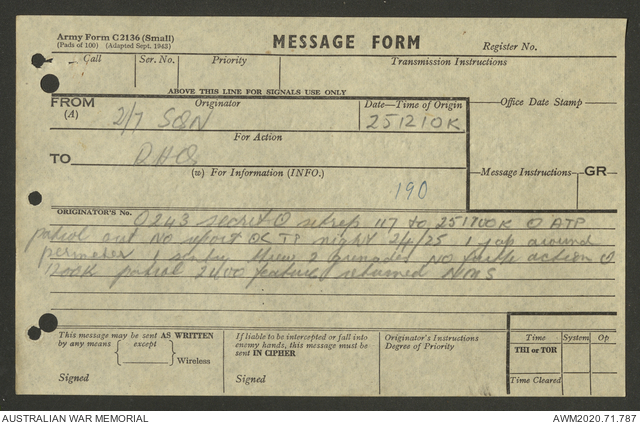 Army Form C2136 (Small)
(Pads of 100) (Adapted Sept. 1943)
MESSAGE FORM
Register No.
Call Ser. No. Priority Transmission Instructions
ABOVE THIS LINE FOR SIGNALS USE ONLY
FROM Originator Date—Time of Origin Office Date Stamp
(A) 2/7 SQN 251210K
For Action
TO DHQ
(w) For Information (INFO.) Message Instructions GR
190
ORIGINATOR'S No. O243 secret sitrep 117 to 251200K
patrol out No report night 24/25 1 jap around
perimeter 1 sentry threw 2 grenades No further action
1200K patrol 2400 feature returned NMS
This message may be sent AS WRITTEN
by any means except
Wireless
Signed
If liable to be intercepted or fall into
enemy hands, this message must be
sent IN CIPHER
Signed
Originator's Instructions
Degree of Priority
Time System Op
THI or TOR
Time Cleared
AUSTRALIAN WAR MEMORIAL AWM2020.71.787